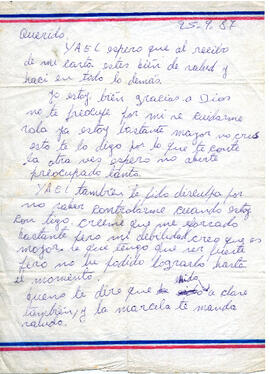 25-9.87
Querido,
YAEL espero que al recibo
de mi carta estes bien de salud y
haci en todo lo demas.
Yo estoy bien gracias a Dios
no te preocupe por mi se cuidarme
sola ya estoy bastante mayor no cres
esto te lo digo por lo que te conte
la otra ves espero no aberte
preocupado tanto.
YAEL tambien te pido disculpa por
no saber controlarme cuando estoy
con tigo, creeme que me
bastante pero mi debilidad creo que es
mayor. se que tengo que ser fuerte
pero no he podido lograrlo hasta
el momento.
quero te dire que a clare
tambien, y la marcela te manda
saludo.